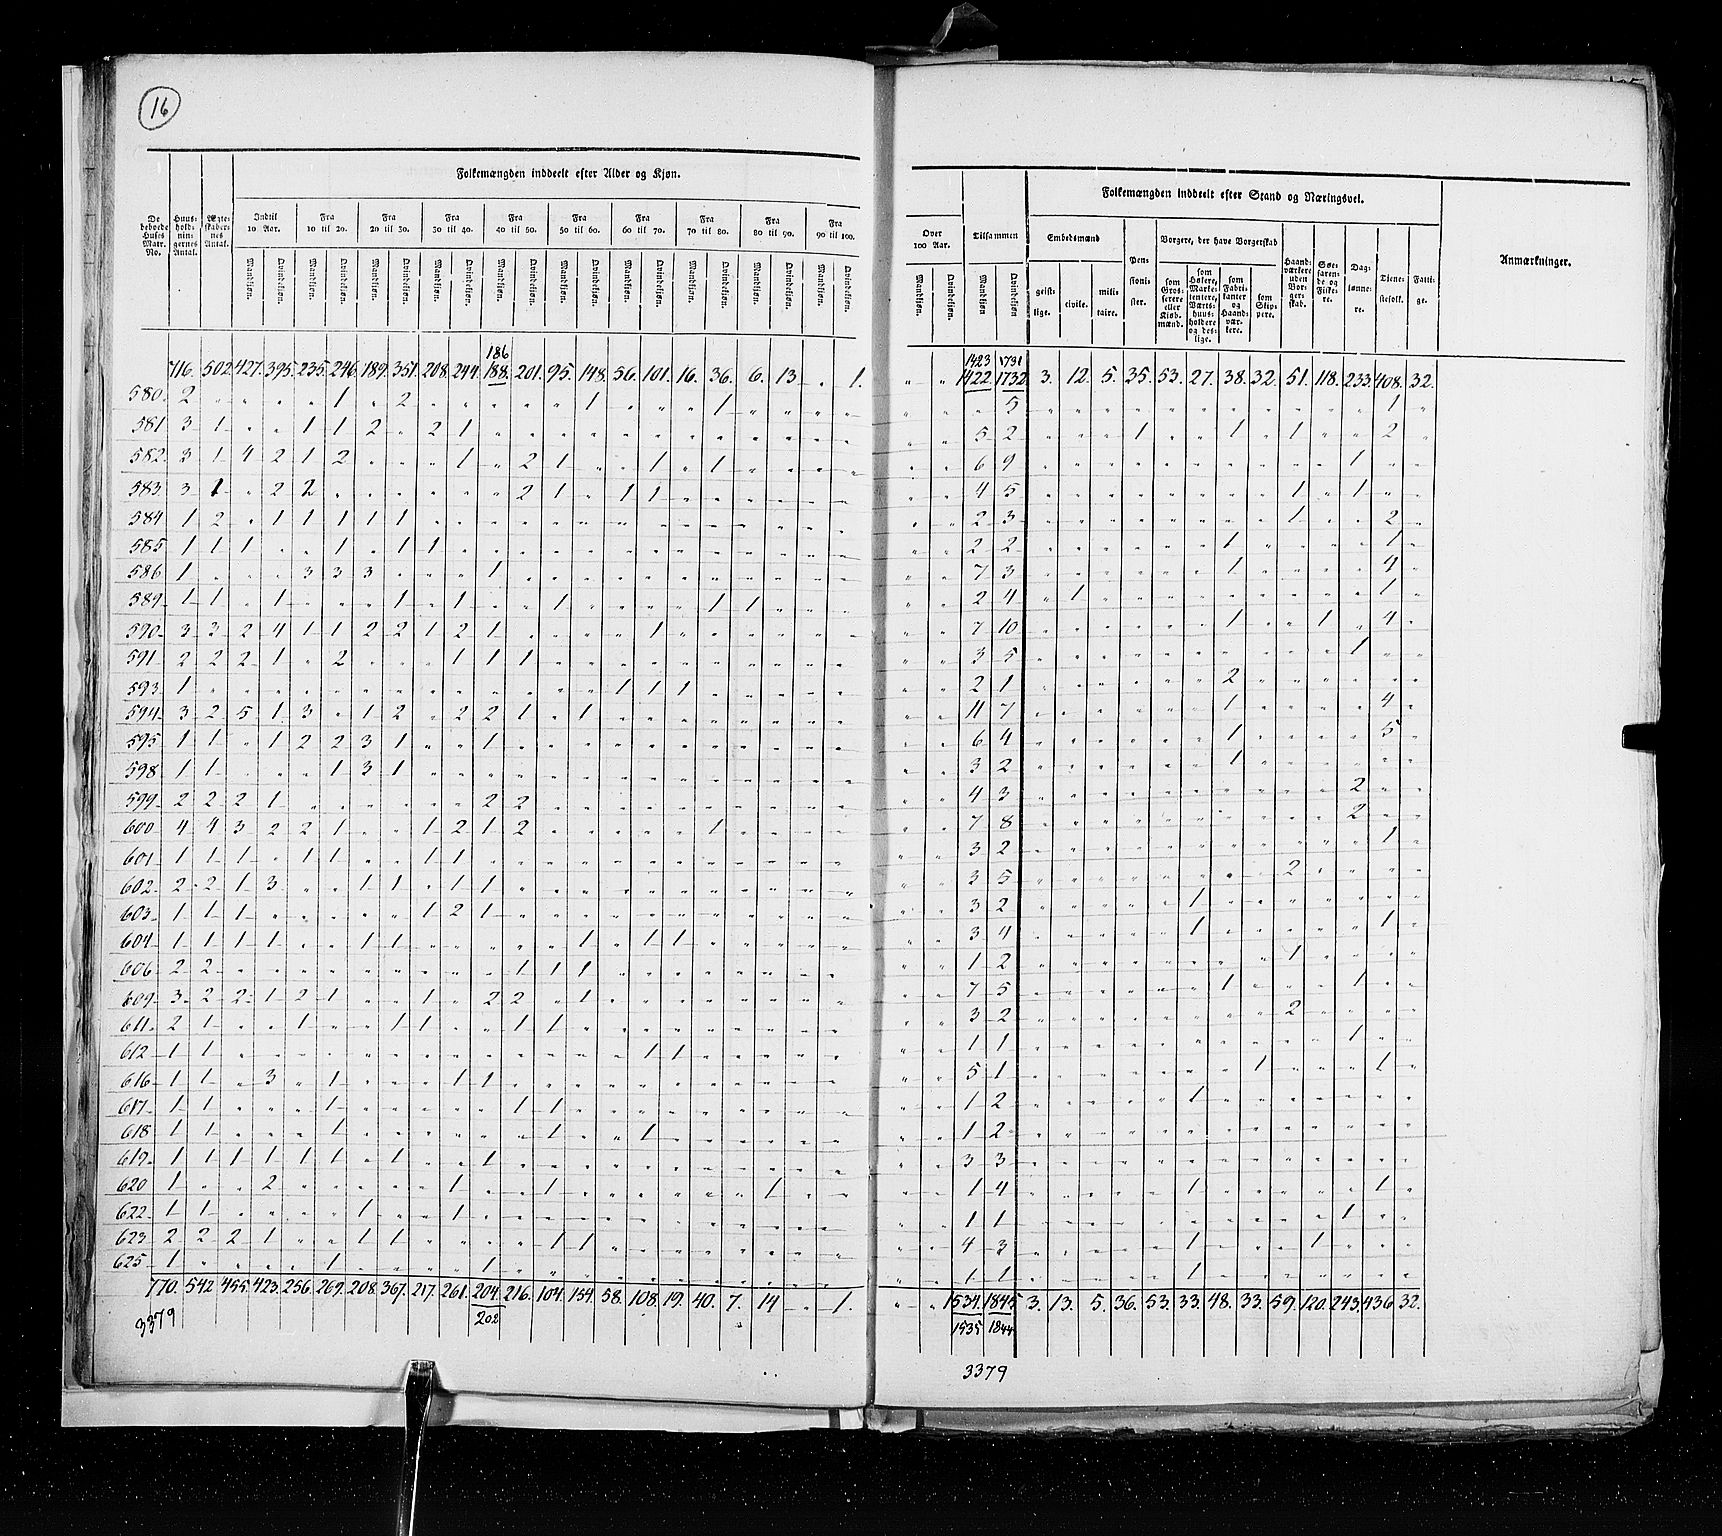 16
Folkemængden inddeelt efter Alder og Kjøn.
Folkemængden inddeelt efter Stand og Næringsvei.
De beboede Huses Matr. No.
Huusholdningernes Antal.
Ægteskabernes Antal.
Indtil 10 Aar.
Fra 10 til 20.
Fra 20 til 30.
Fra 30 til 40.
Fra 40 til 50.
Fra 50 til 60.
Fra 60 til 70.
Fra 70 til 80.
Fra 80 til 90.
Fra 90 til 100.
Over 100 Aar.
Tilsammen
Mandkjøn. Qvindekjøn.
Embedsmænd
geistlige. civile. militaire.
Pensionister.
Borgere, der have Borgerskab
som Grosserere eller Kjøbmænd.
som Høkere, Marketentere, Værtshuusholdere og deslige.
som Fabrikanter og Haandværkere.
som Skippere.
Haandværkere uden Borgerskab.
Søefarende og Fiskere.
Daglønnere.
Tienestefolk.
Fattige.
Anmærkninger.
186 1423 1731
716. 502. 427. 395. 235. 246. 189. 351. 208. 244. 188. 201. 95. 148. 56. 101. 16. 36. 6. 13 „ 1. „ „ 1422. 1732. 3. 12. 5. 35. 53. 27. 38. 32. 51. 118. 233. 408. 32.
580. 2 „ „ „ „ 1 „ 2 „ „ „ „ „ 1 „ „ „ 1 „ „ „ „ „ „ „ 5 „ „ „ „ „ „ „ „ „ „ „ 1 „
581 3 1 „ „ 1 1 2 „ 2 1 „ „ „ „ „ „ „ „ „ „ „ „ „ „ 5 2 „ „ „ 1 „ „ 1 „ 1 „ „ 2 „
582. 3 1 4 2 1 2 „ „ „ 1 „ 2 1 „ „ 1 „ 1 „ „ „ „ „ „ 6 9 „ „ „ „ „ „ „ „ „ „ 1 „ „
583 3 1 „ 2 2 „ „ „ „ „ „ 2 1 „ 1 1 „ „ „ „ „ „ „ „ 4 5 „ „ „ „ „ „ „ „ 1 „ 1 „ „
584 1 2 „ 1 1 1 1 1 „ „ „ „ „ „ „ „ „ „ „ „ „ „ „ „ 2 3 „ „ „ „ „ „ „ „ 1 „ „ 2 „
585 1 1 1 „ „ 1 „ 1 1 „ „ „ „ „ „ „ „ „ „ „ „ „ „ „ 2 2 „ „ „ „ „ „ 1 „ „ „ „ 1 „
586 1 „ „ „ 3 3 3 „ „ „ 1 „ „ „ „ „ „ „ „ „ „ „ „ „ 7 3 „ „ „ „ „ „ 1 „ „ „ „ 4 „
589 1 1 „ 1 „ „ „ 1 „ 1 „ „ 1 „ „ „ „ 1 1 „ „ „ „ „ 2 4 „ 1 „ „ „ „ „ „ „ „ „ 1 „
590 3 3 2 4 1 1 2 2 1 2 1 „ „ „ „ 1 „ „ „ „ „ „ „ „ 7 10 „ „ „ „ „ „ 1 „ „ 1 „ 4 „
591 2 2 2 1 „ 2 „ „ „ 1 1 1 „ „ „ „ „ „ „ „ „ „ „ „ 3 5 „ „ „ „ „ „ „ „ „ „ 1 „ „
593 1 „ „ „ „ „ „ „ „ „ „ „ „ „ 1 1 1 „ „ „ „ „ „ „ 2 1 „ „ „ „ „ „ 2 „ „ „ „ „ „
594 3 2 5 1 3 „ 1 2 „ 2 2 1 „ 1 „ „ „ „ „ „ „ „ „ „ 11 7 „ „ „ „ „ „ 1 „ „ „ „ 4 „
595 1 1 „ 1 2 2 3 1 „ „ 1 „ „ „ „ „ „ „ „ „ „ „ „ „ 6 4 „ „ „ „ „ „ 1 „ „ „ „ 5 „
598 1 1 „ „ „ 1 3 1 „ „ „ „ „ „ „ „ „ „ „ „ „ „ „ „ 3 2 „ „ „ „ „ „ 1 „ „ „ „ „ „
599 2 2 2 1 „ „ „ „ „ „ 2 2 „ „ „ „ „ „ „ „ „ „ „ „ 4 3 „ „ „ „ „ „ „ „ „ „ 2 „ „
600 4 4 3 2 2 1 „ „ 1 2 1 2 „ „ „ „ „ 1 „ „ „ „ „ „ 7 8 „ „ „ „ „ „ „ „ „ „ 2 „ „
601 1 1 1 „ 1 1 „ „ 1 1 „ „ „ „ „ „ „ „ „ „ „ „ „ „ 3 2 „ „ „ „ „ „ „ „ „ „ „ 1 „
602 2 2 1 3 „ „ 1 1 „ 1 1 „ „ „ „ „ „ „ „ „ „ „ „ „ 3 5 „ „ „ „ „ „ „ „ 2 „ „ „ „
603 1 1 1 „ „ „ „ „ 1 2 1 „ „ „ „ „ „ „ „ „ „ „ „ „ 3 2 „ „ „ „ „ 1 „ „ „ „ „ „ „
604 1 1 1 1 „ „ 1 1 „ „ „ „ „ 1 „ 1 1 „ „ „ „ „ „ „ 3 4 „ „ „ „ „ 1 „ „ „ „ „ 1 „
606 2 2 „ „ „ „ „ „ „ „ „ 1 1 1 „ „ „ „ „ „ „ „ „ „ 1 2 „ „ „ „ „ „ „ „ 1 „ „ „ „
609 3 2 2 1 2 1 „ „ 1 „ 2 2 „ 1 „ „ „ „ „ „ „ „ „ „ 7 5 „ „ „ „ „ „ 1 „ „ „ 1 „ „
611 2 1 „ „ 1 „ „ 1 1 „ „ 1 1 „ „ „ „ „ „ „ „ „ „ „ 3 2 „ „ „ „ „ „ „ „ 2 „ „ „ „
612 1 1 „ „ „ „ „ „ „ „ „ „ „ „ „ 1 1 „ „ „ „ „ „ „ 1 1 „ „ „ „ „ „ „ „ „ „ 1 „ „
616 1 1 „ 3 „ 1 „ „ „ 1 1 „ „ „ „ „ „ „ „ „ „ „ „ „ 5 1 „ „ „ „ „ „ „ 1 „ „ „ 1 „
617 1 1 „ „ „ 1 „ „ „ „ „ 1 1 „ „ „ „ „ „ „ „ „ „ „ 1 2 „ „ „ „ „ 1 „ „ „ „ „ „ „
618 1 1 „ „ „ 1 „ „ „ „ „ „ 1 „ „ 1 „ „ „ „ „ „ „ „ 1 2 „ „ „ „ „ „ „ „ „ „ „ „ „
619 1 1 1 1 1 1 „ 1 „ „ 1 „ „ „ „ „ „ „ „ „ „ „ „ „ 3 3 „ „ „ „ „ „ „ „ „ „ „ „ „
620 1 „ „ 2 „ „ „ „ „ 1 „ „ 1 „ „ „ „ „ „ 1 „ „ „ „ 1 4 „ „ „ „ „ 1 „ „ „ „ „ 1 „
622 1 1 „ „ „ „ 1 „ „ 1 „ „ „ „ „ „ „ „ „ „ „ „ „ „ 1 1 „ „ „ „ „ „ „ „ „ „ 1 „ „
623 2 2 2 1 „ „ 1 1 „ „ „ „ 1 1 „ „ „ „ „ „ „ „ „ „ 4 3 „ „ „ „ „ 1 „ „ „ 1 „ „ „
625 1 „ „ „ „ 1 „ „ „ „ 1 „ „ „ „ „ „ „ „ „ „ „ „ „ 1 1 „ „ „ „ „ 1 „ „ „ „ „ „ „
770. 542 455. 423. 256. 269. 208. 367. 217. 261. 204. 216. 104. 154. 58. 108. 19. 40. 7. 14 „ 1. „ „ 1534. 1845 3. 13. 5. 36. 53. 33. 48. 33. 59. 120. 243. 436 32.
3379 202 1535 1844
3379